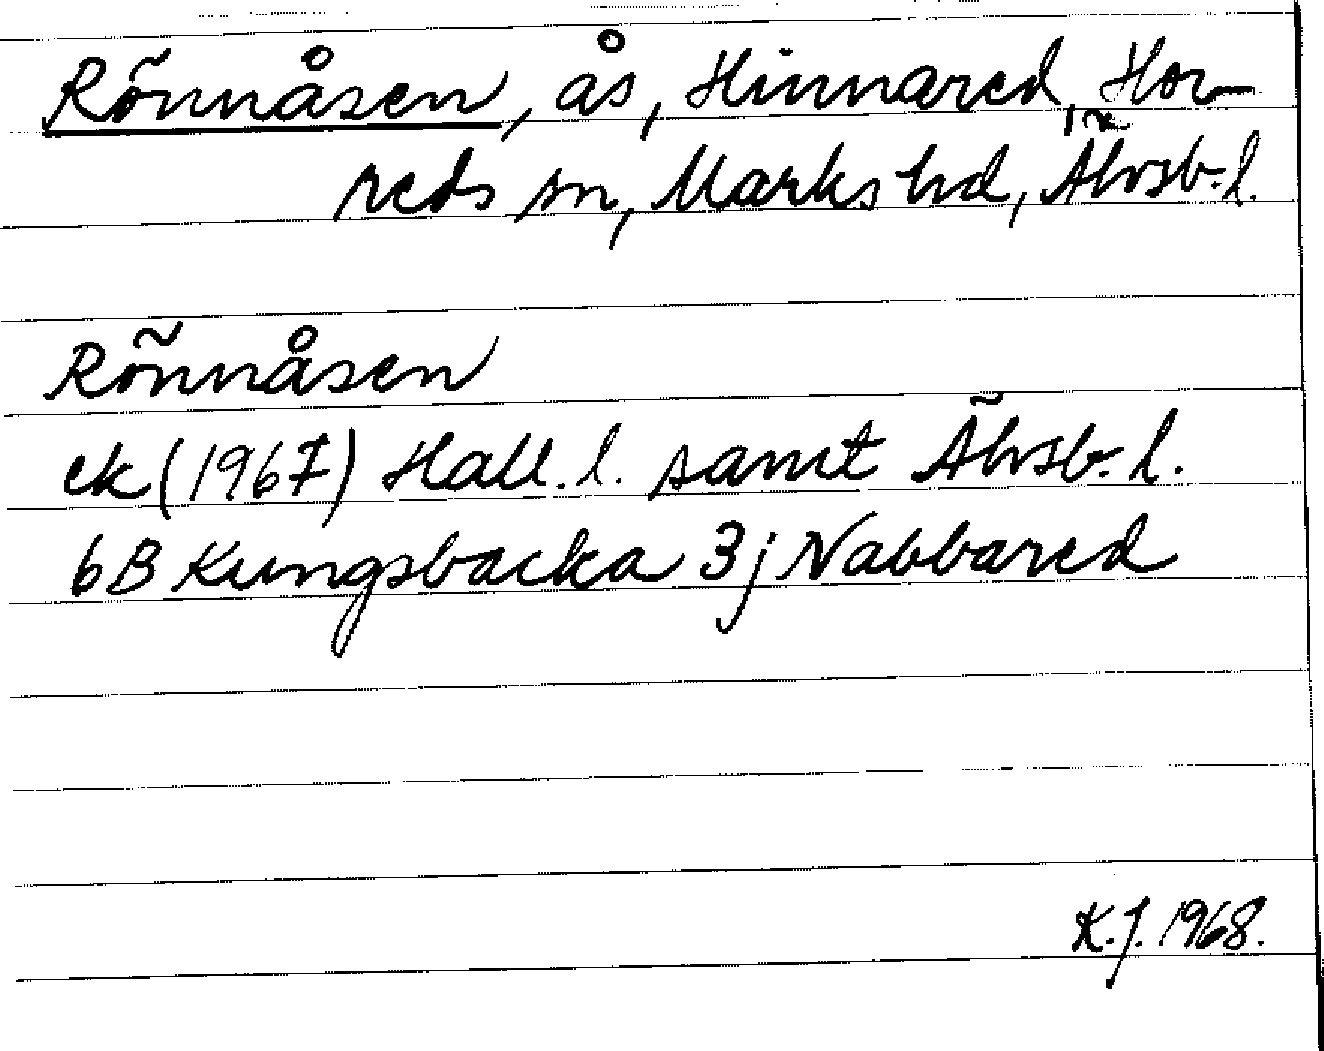 Rönnåsen, ås, Hinnared, Hor-
reds sn, Marks hd, Älvsb. l.
Rönnåsen
ek (1967) Hall. l. samt Älvsb. l.
6B Kungsbacka 3j Nabbared
K.J. 1968.